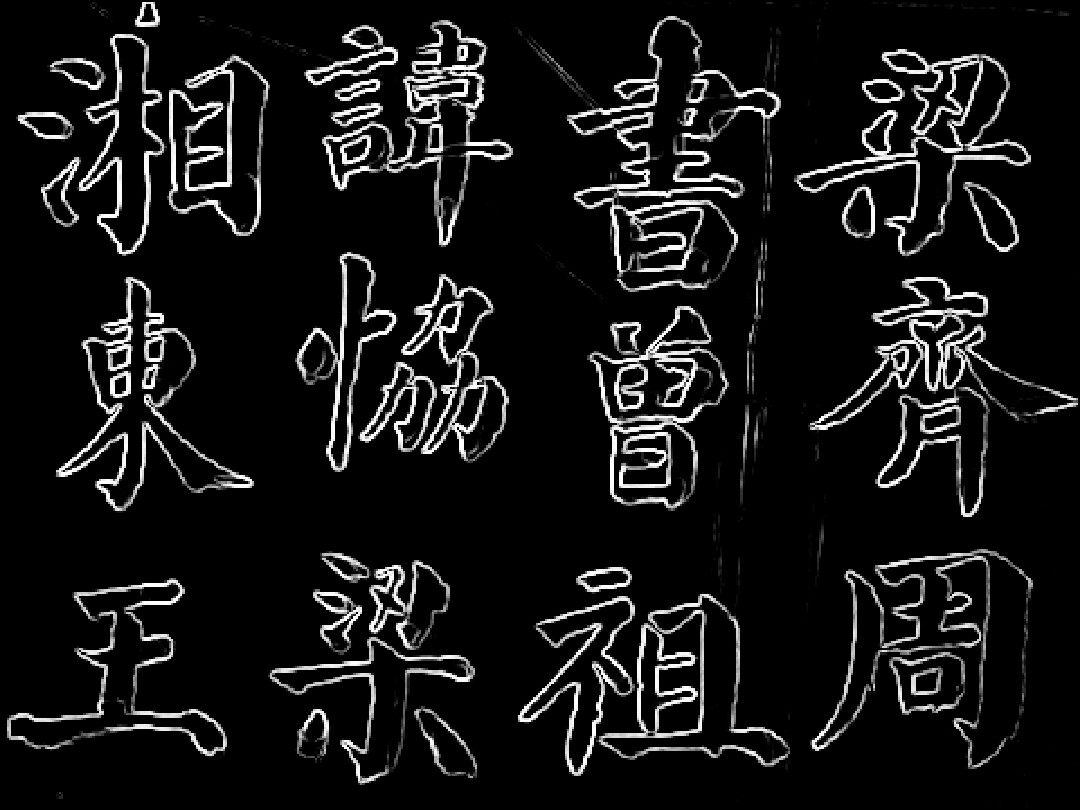 梁齊周
書曾祖
諱協梁
湘東王